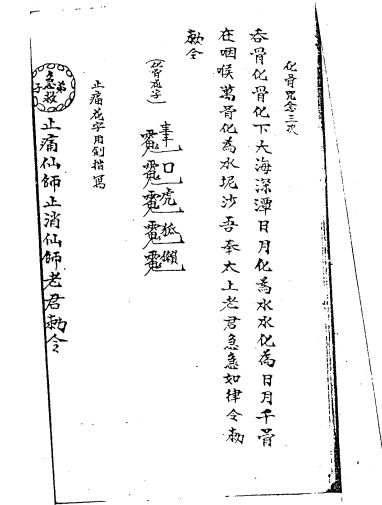 化骨咒念三次
吞骨化骨化下大海深潭日月化為水水化為日月千骨
在咽喉萬骨化為水坭沙吾奉太上老君急急如律令勅
勅令
口
虎
狐
獺
止痛花字用剑指寫
弟子
急救
止痛仙師止消仙師老君勅令